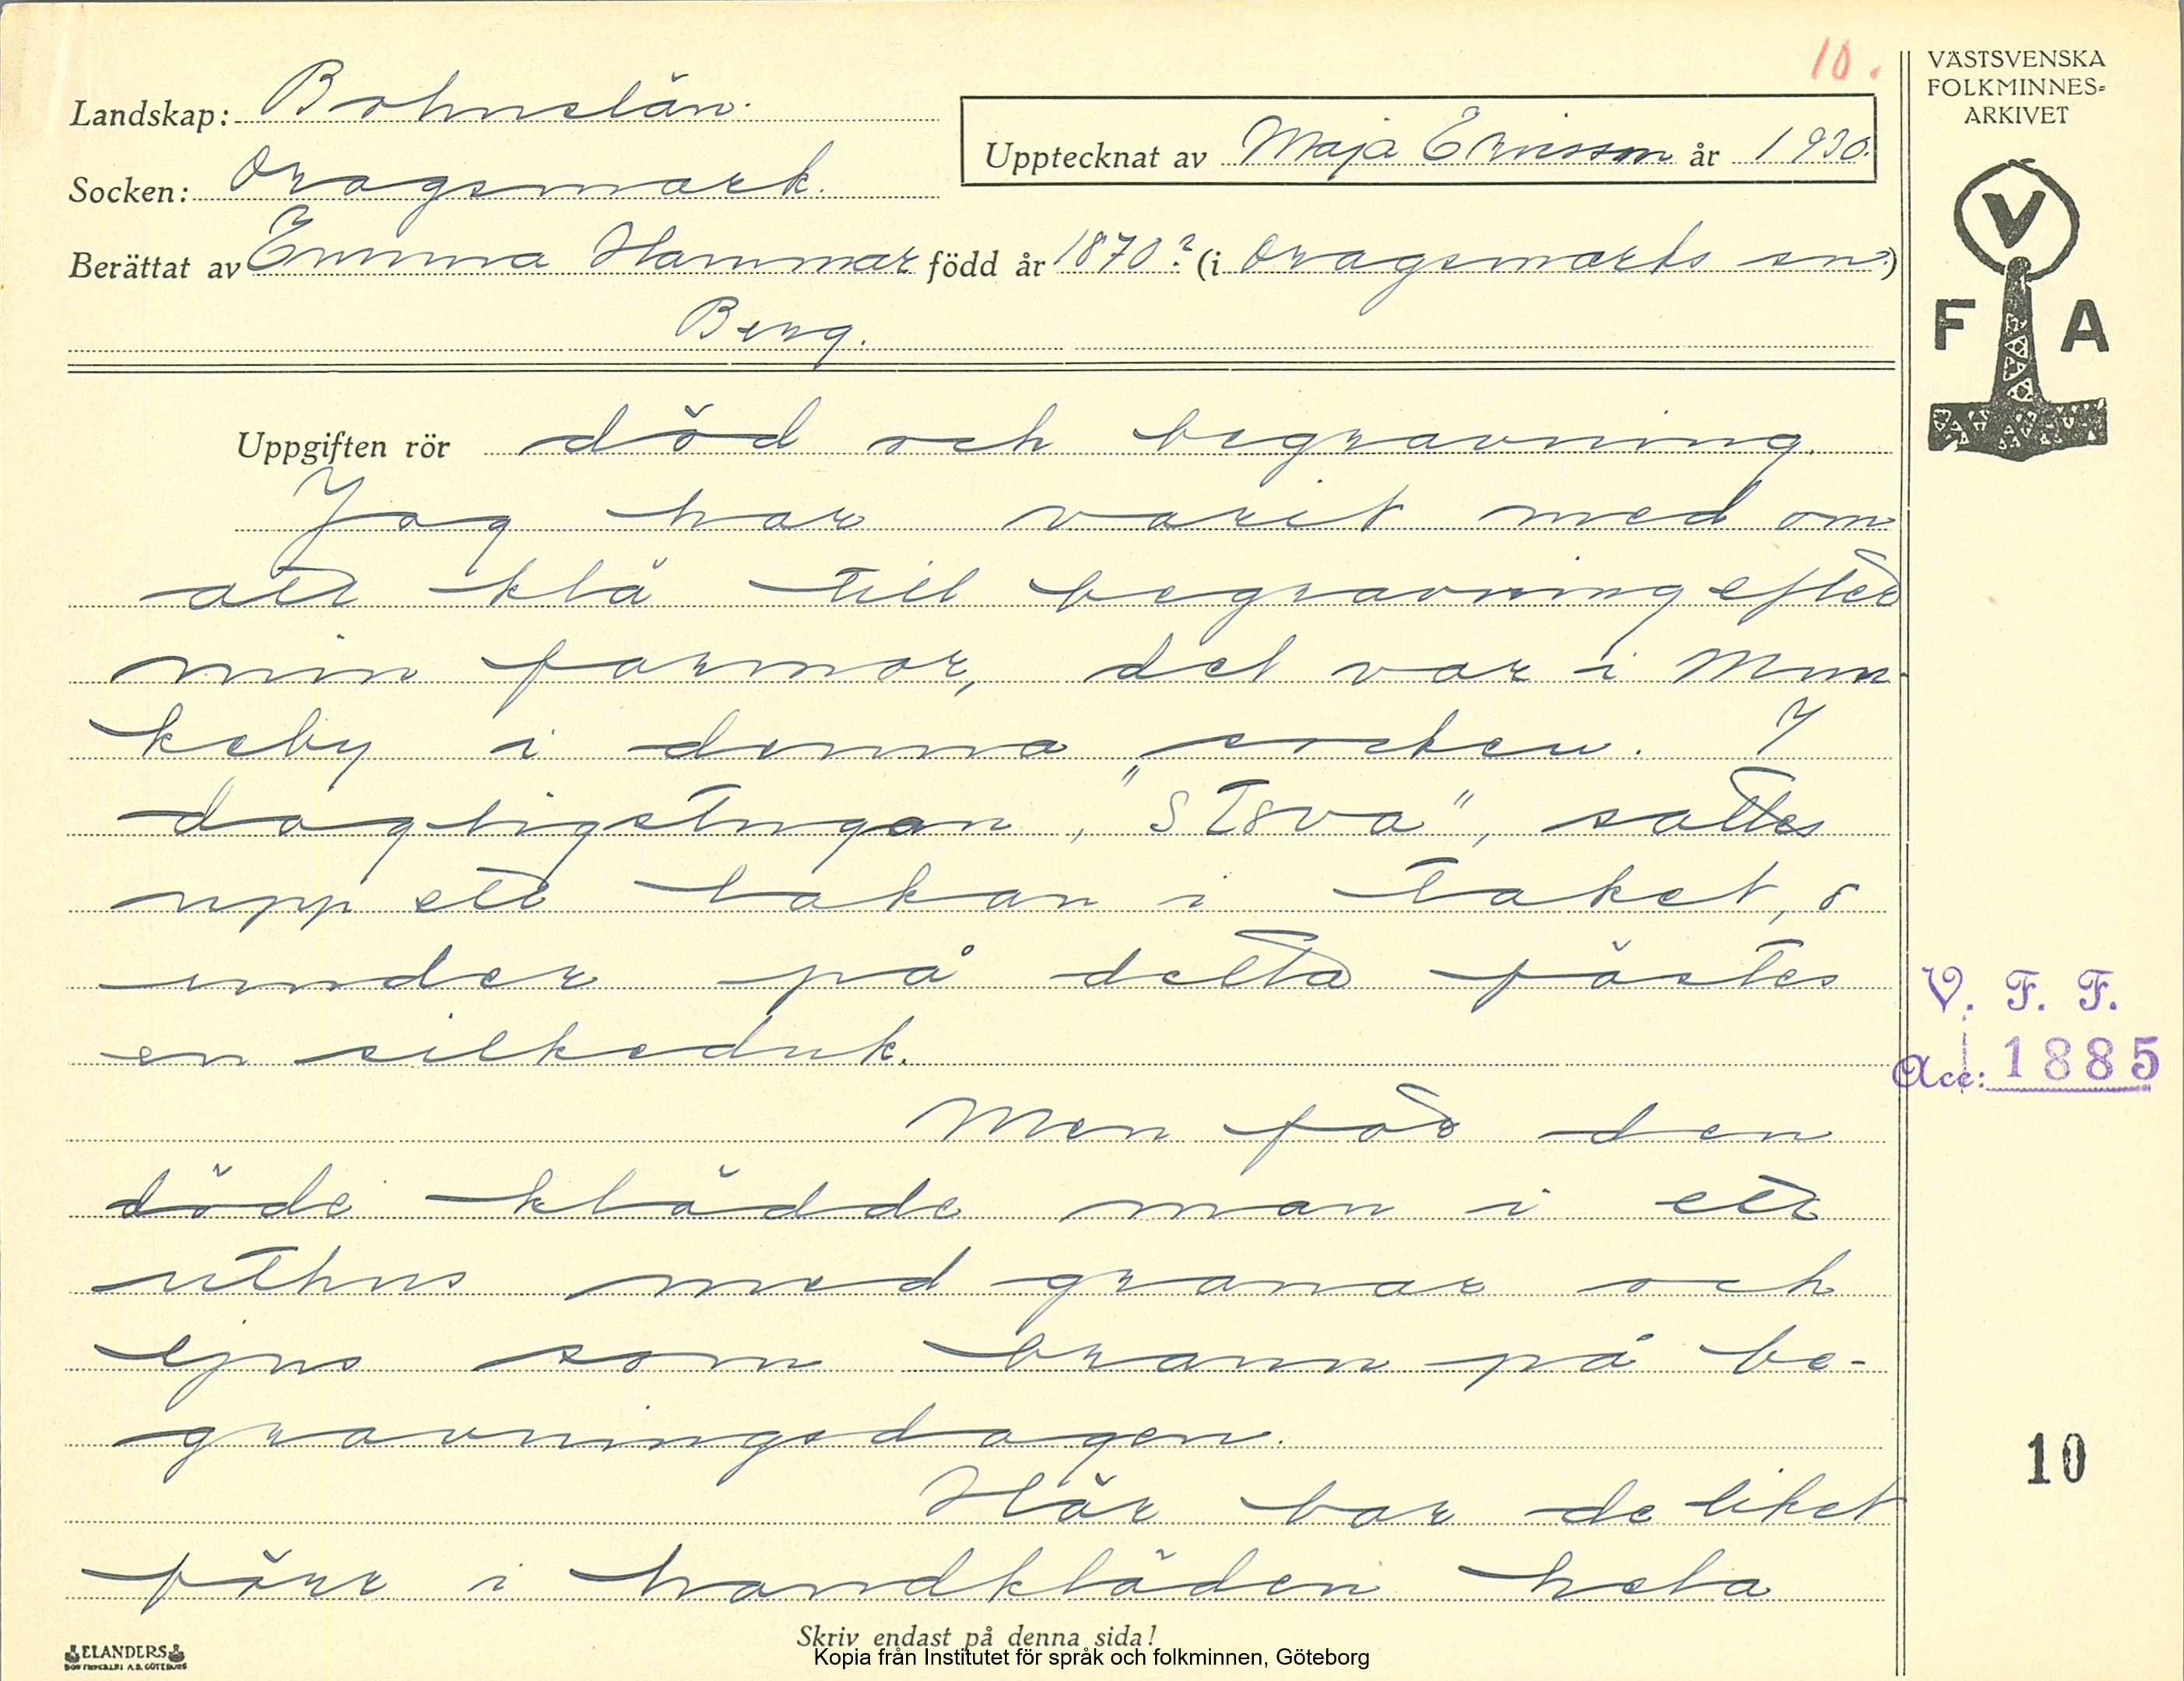 10.
VÄSTSVENSKA
FOLKMINNES=
ARKIVET
Landskap: Bohuslän.
Upptecknat av Maja Ericsson år 1930.
Socken: Dragsmark.
Berättat av Emma Hammar född år 1870? (i Dragsmarks sn.)
Berg.
V
F A
Uppgiften rör död och begravning.
Jag har varit med om
att klä till begravning efter
min farmor, det var i Mun-
keby i denna socken. I
dagligstugan, "stova", sattes
upp ett lakan i taket, o
under på detta fästes
en silkeduk.
V. F. F.
Acc: 1885
Men för den
döde klädde man i ett
uthus med granar och
ljus som brann på be-
gravningsdagen.
10
Här bar de liket
förr i handkläden hela
Skriv endast på denna sida!
ELANDERS
Kopia från Institutet för språk och folkminnen, Göteborg